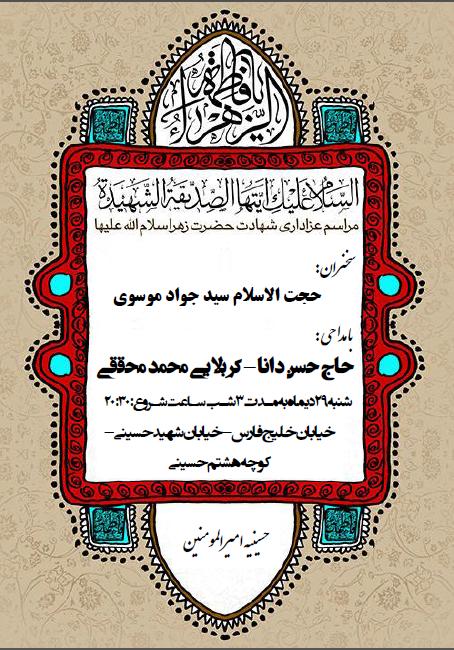 یا فاطمة الزهراء
السلام علیک ایتها الصدیقة الشهیدة
مراسم عزاداری شهادت حضرت زهرا سلام الله علیها
سخنران:
حجت الاسلام سید جواد موسوی
بامداحی:
حاج حسن دانا - کربلایی محمد محققی
شنبه ۲۹ دیماه به مدت ۳ شب ساعت شروع: ۲۰:۳۰
خیابان خلیج فارس - خیابان شهید حسینی -
کوچه هشتم حسینی
حسینیه امیرالمومنین